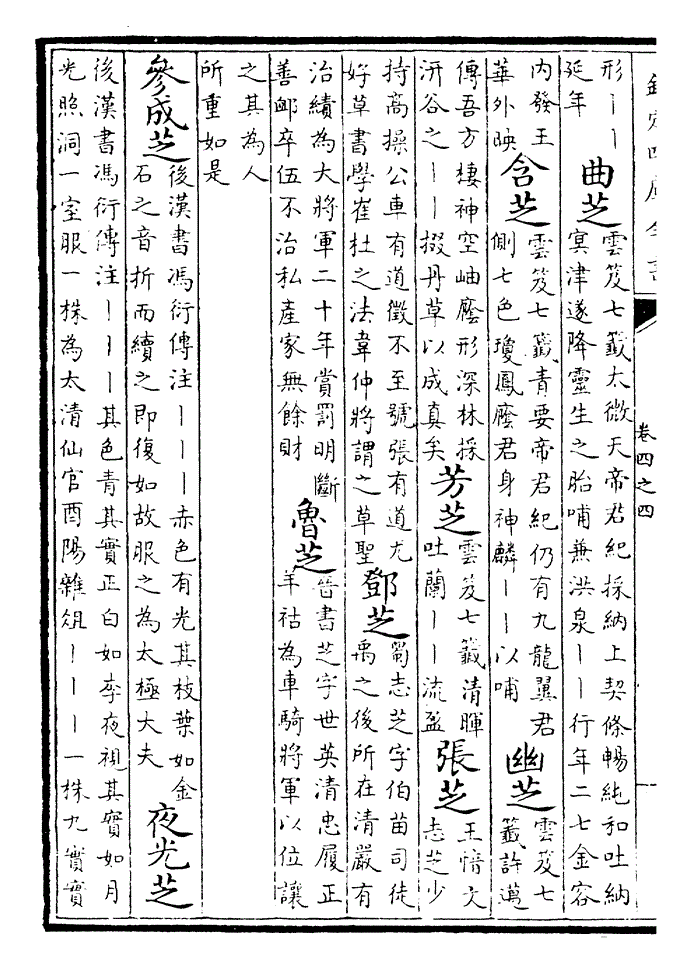 欽定四庫全書
卷四之四
形丨丨
延年
曲芝
雲笈七籤太微天帝君紀採納上契條暢純和吐納
㝠津遂降靈生之胎哺兼洪泉丨丨行年二七金容
内發王
華外映
含芝
雲笈七籤青要帝君紀仍有九龍翼君
側七色瓊鳳廕君身神麟丨丨以哺
幽芝
雲笈七
籤許邁
傳吾方棲神空岫廕形深林採
汧谷之丨丨掇丹草以成真矣
芳芝
雲笈七籤清暉
吐蘭丨丨流盈
張芝
王愔文
志芝少
持高操公車有道徵不至號張有道尤
好草書學崔杜之法韋仲將謂之草聖
鄧芝
蜀志芝字伯苗司徒
禹之後所在清嚴有
治績為大將軍二十年賞罰明斷
善卹卒伍不治私產家無餘財
魯芝
晉書芝字世英清忠履正
羊祜為車騎將軍以位讓
之其為人
所重如是
參成芝
後漢書馮衍傳注丨丨丨赤色有光其枝葉如金
石之音折而續之即復如故服之為太極大夫
夜光芝
後漢書馮衍傳注丨丨丨其色青其實正白如李夜視其實如月
光照洞一室服一株為太清仙官酉陽雜俎丨丨丨一株九實實